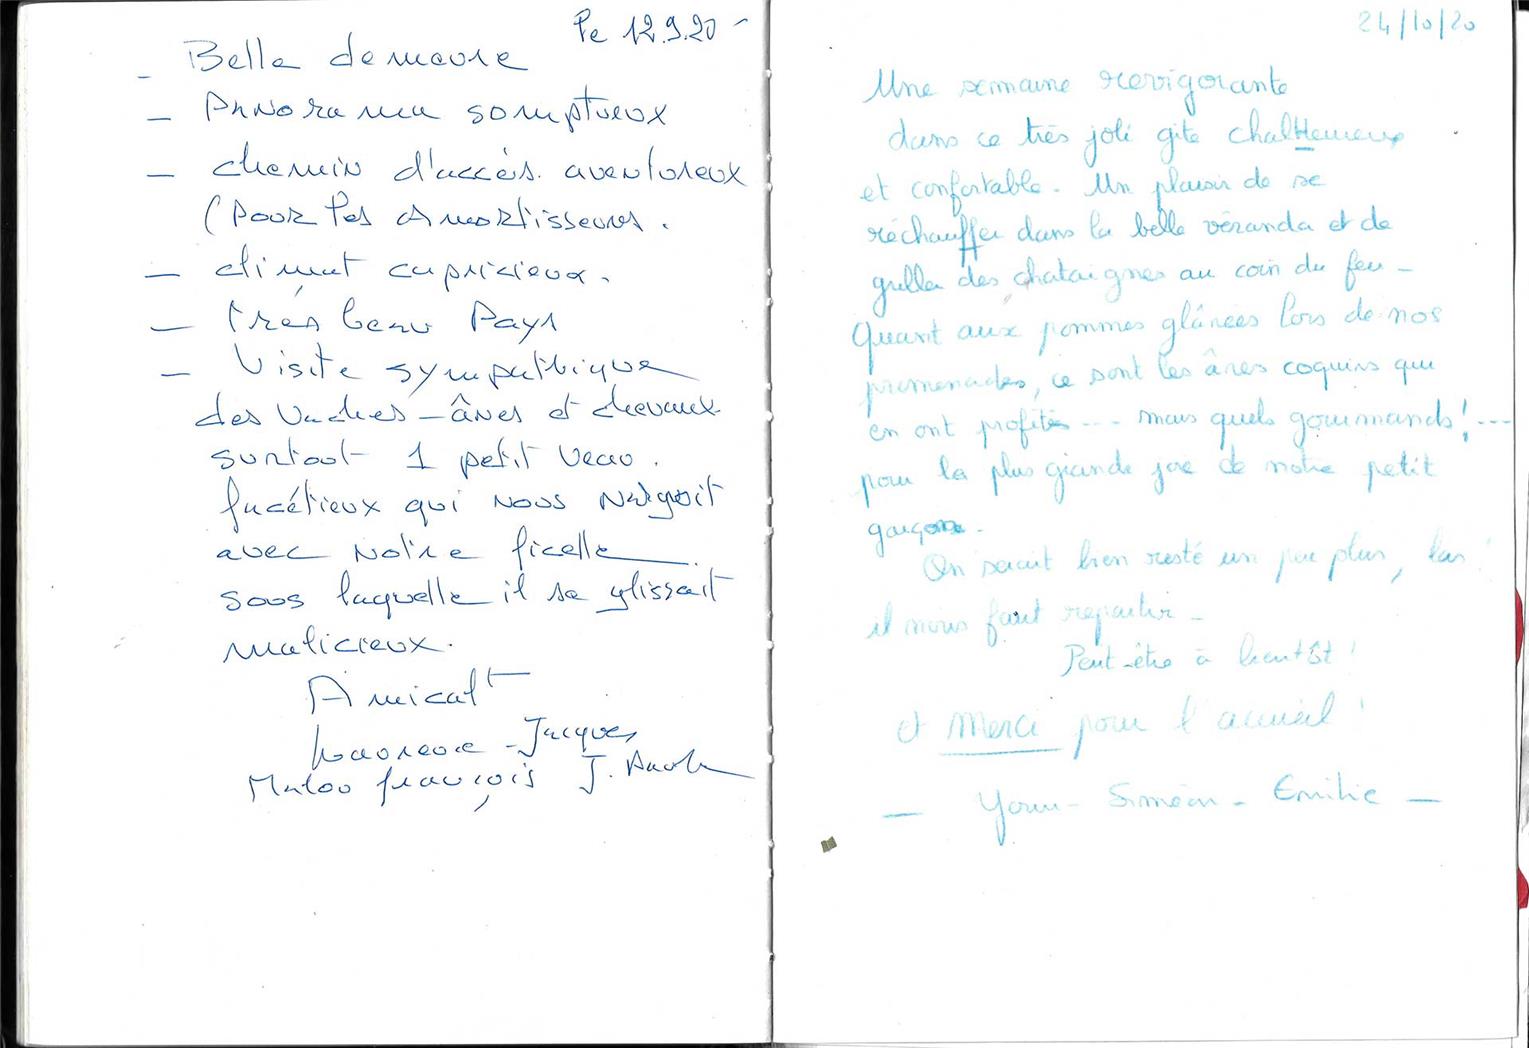 Le 12.9.20 -
- Belle demeure
- Panorama somptueux
- chemin d'accès. aventureux
(pour les amortisseurs.
- climat capricieux.
- très beau Pays
- Visite sympathique
des vaches - ânes et chevaux
surtout 1 petit veau.
facétieux qui nous narguait
avec notre ficelle
sous laquelle il se glissait
malicieux.
Amicalt
Laurence - Jacques
Malou françois J.
24/10/20
Une semaine revigorante
dans ce très joli gite
et confortable. Un plaisir de se
réchauffer dans la belle véranda et de
griller des chataignes au coin du feu -
Quant aux pommes glânées lors de nos
promenades, ce sont les ânes coquins qui
en ont profités ... mais quels gourmands! ...
pour la plus grande joie de notre petit
garçon.
On serait bien resté un peu plus, las!
il nous faut repartir -
Peut-être à bientôt!
et Merci pour l'accueil!
- Yann - Siméon - Emilie -